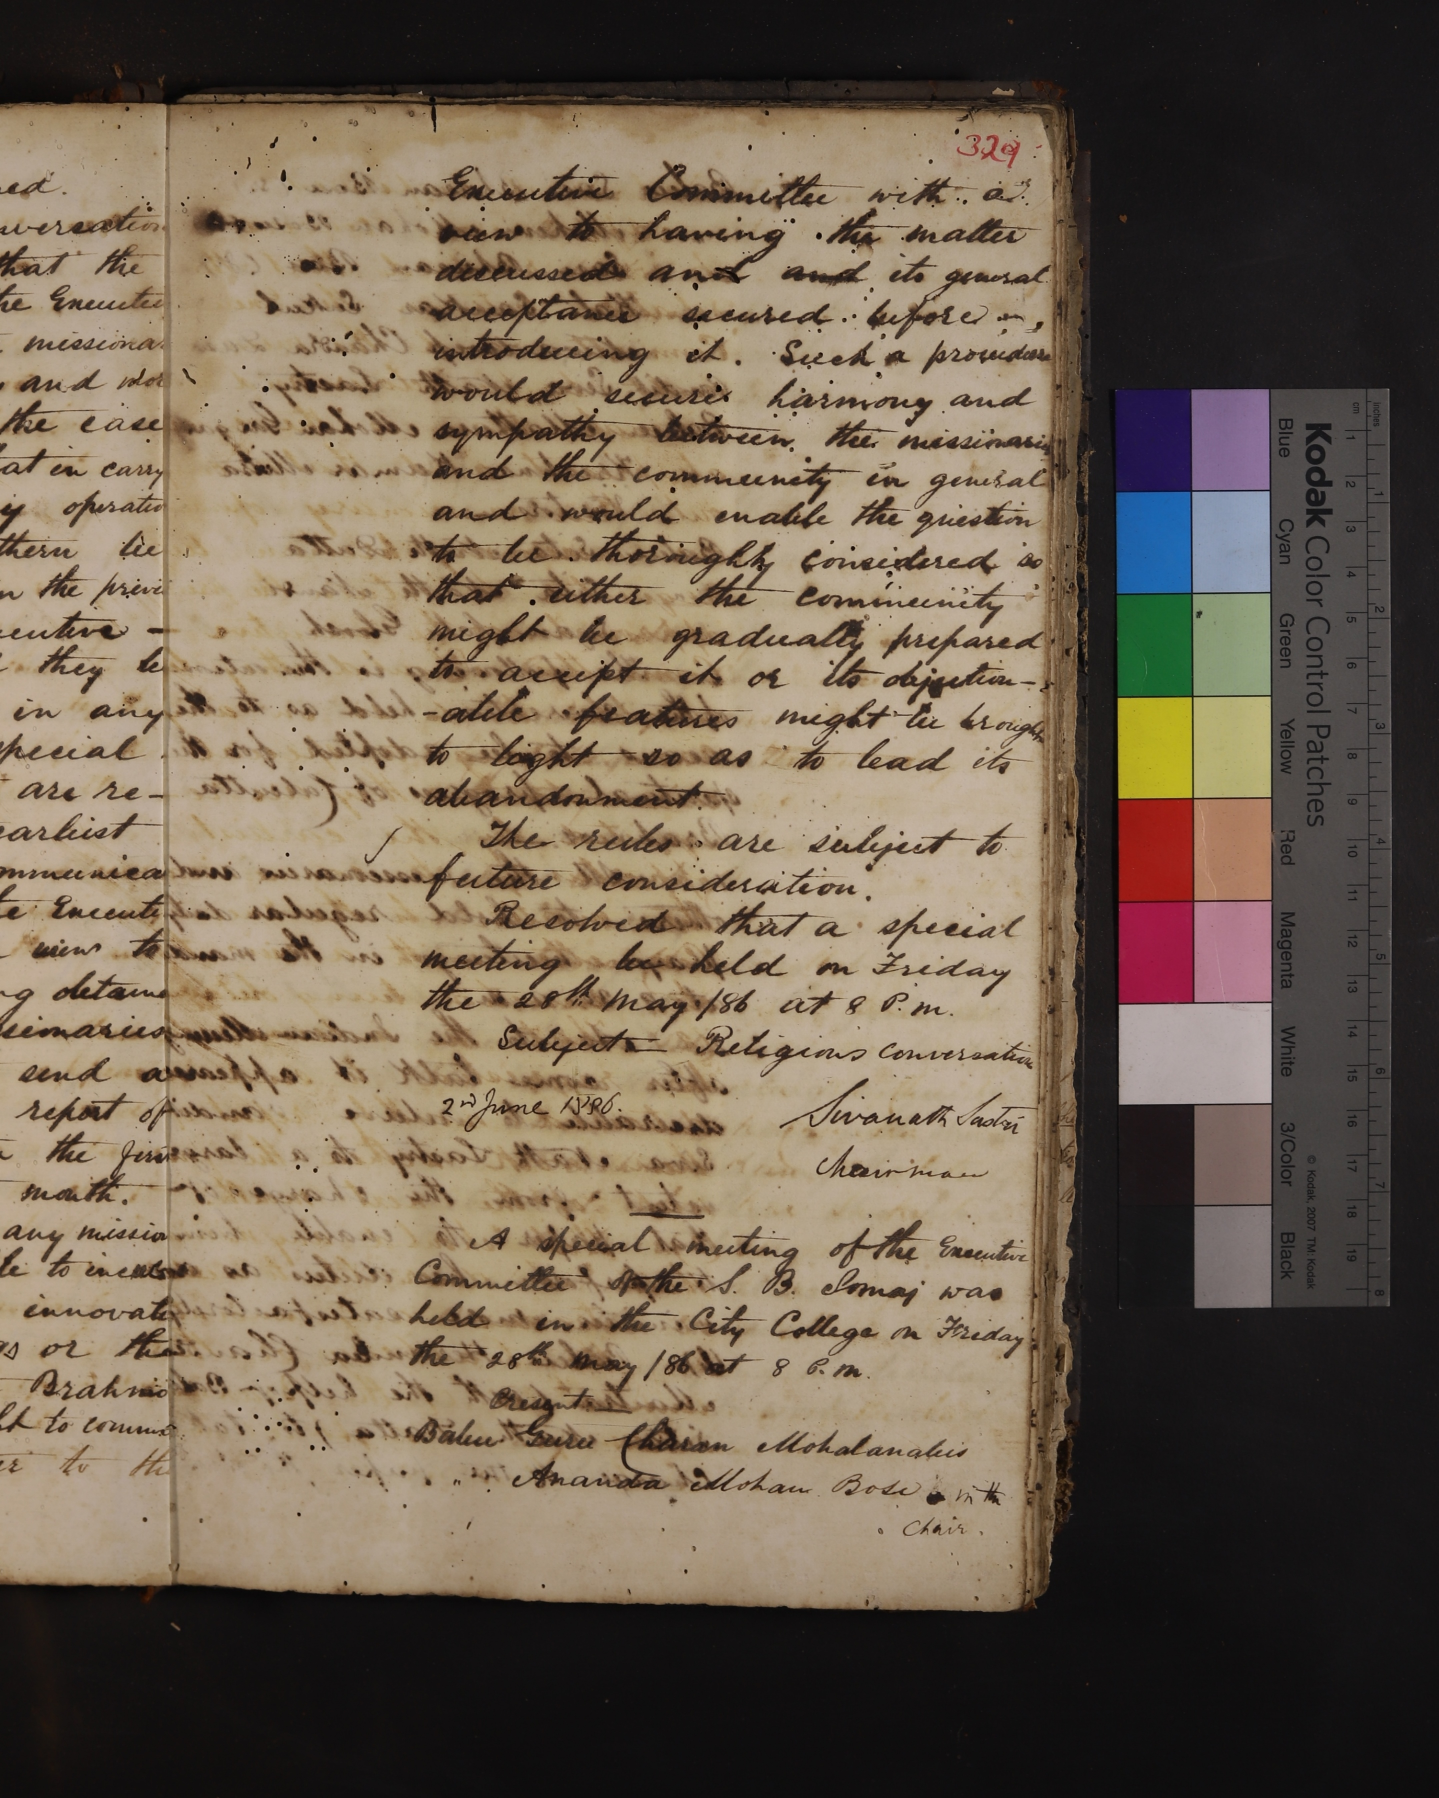 ed.
nversation
that the
the Executive
missiona
and wor
the case
at in carry
y operatio
thern be
n the previ
ecutive -
they be
in any
special
are re-
earliest
mmunica
te Executi
view to
ng detaine
sionaries
send a
report of
the firs
month.
any mission
le to
innovati
gs or the
Brahmo
ht to commu
er to th
329
Executive Committee with a
view to having the matter
discussed and and its general
acceptance secured before
introducing it. Such a procedure
would secure harmony and
sympathy between the missionaries
and the community in general
and would enable the question
to be thoroughly considered so
that either the community
might be gradually prepared
to accept it or its objection-
-able features might be brought
to light so as to lead its
abandonment.
The rules are subject to
future consideration.
Resolved that a special
meeting be held on Friday
the 28th May /86 at 8 P.m.
Subject - Religious conversation
2nd June 1886.
Sivanath Sastri
Chairman
A special meeting of the Executive
Committee of the S. B. Somaj was
held in the City College on Friday
the 28th May /86 at 8 P.m.
Present -
Babu Guru Charan Mohalanabis
" Ananda Mohan Bose in the
Chair.
Kodak Color Control Patches
Blue Cyan Green Yellow Red Magenta White 3/Color Black
© Kodak, 2007 TM: Kodak
cm 1 2 3 4 5 6 7 8 9 10 11 12 13 14 15 16 17 18 19
inches 1 2 3 4 5 6 7 8